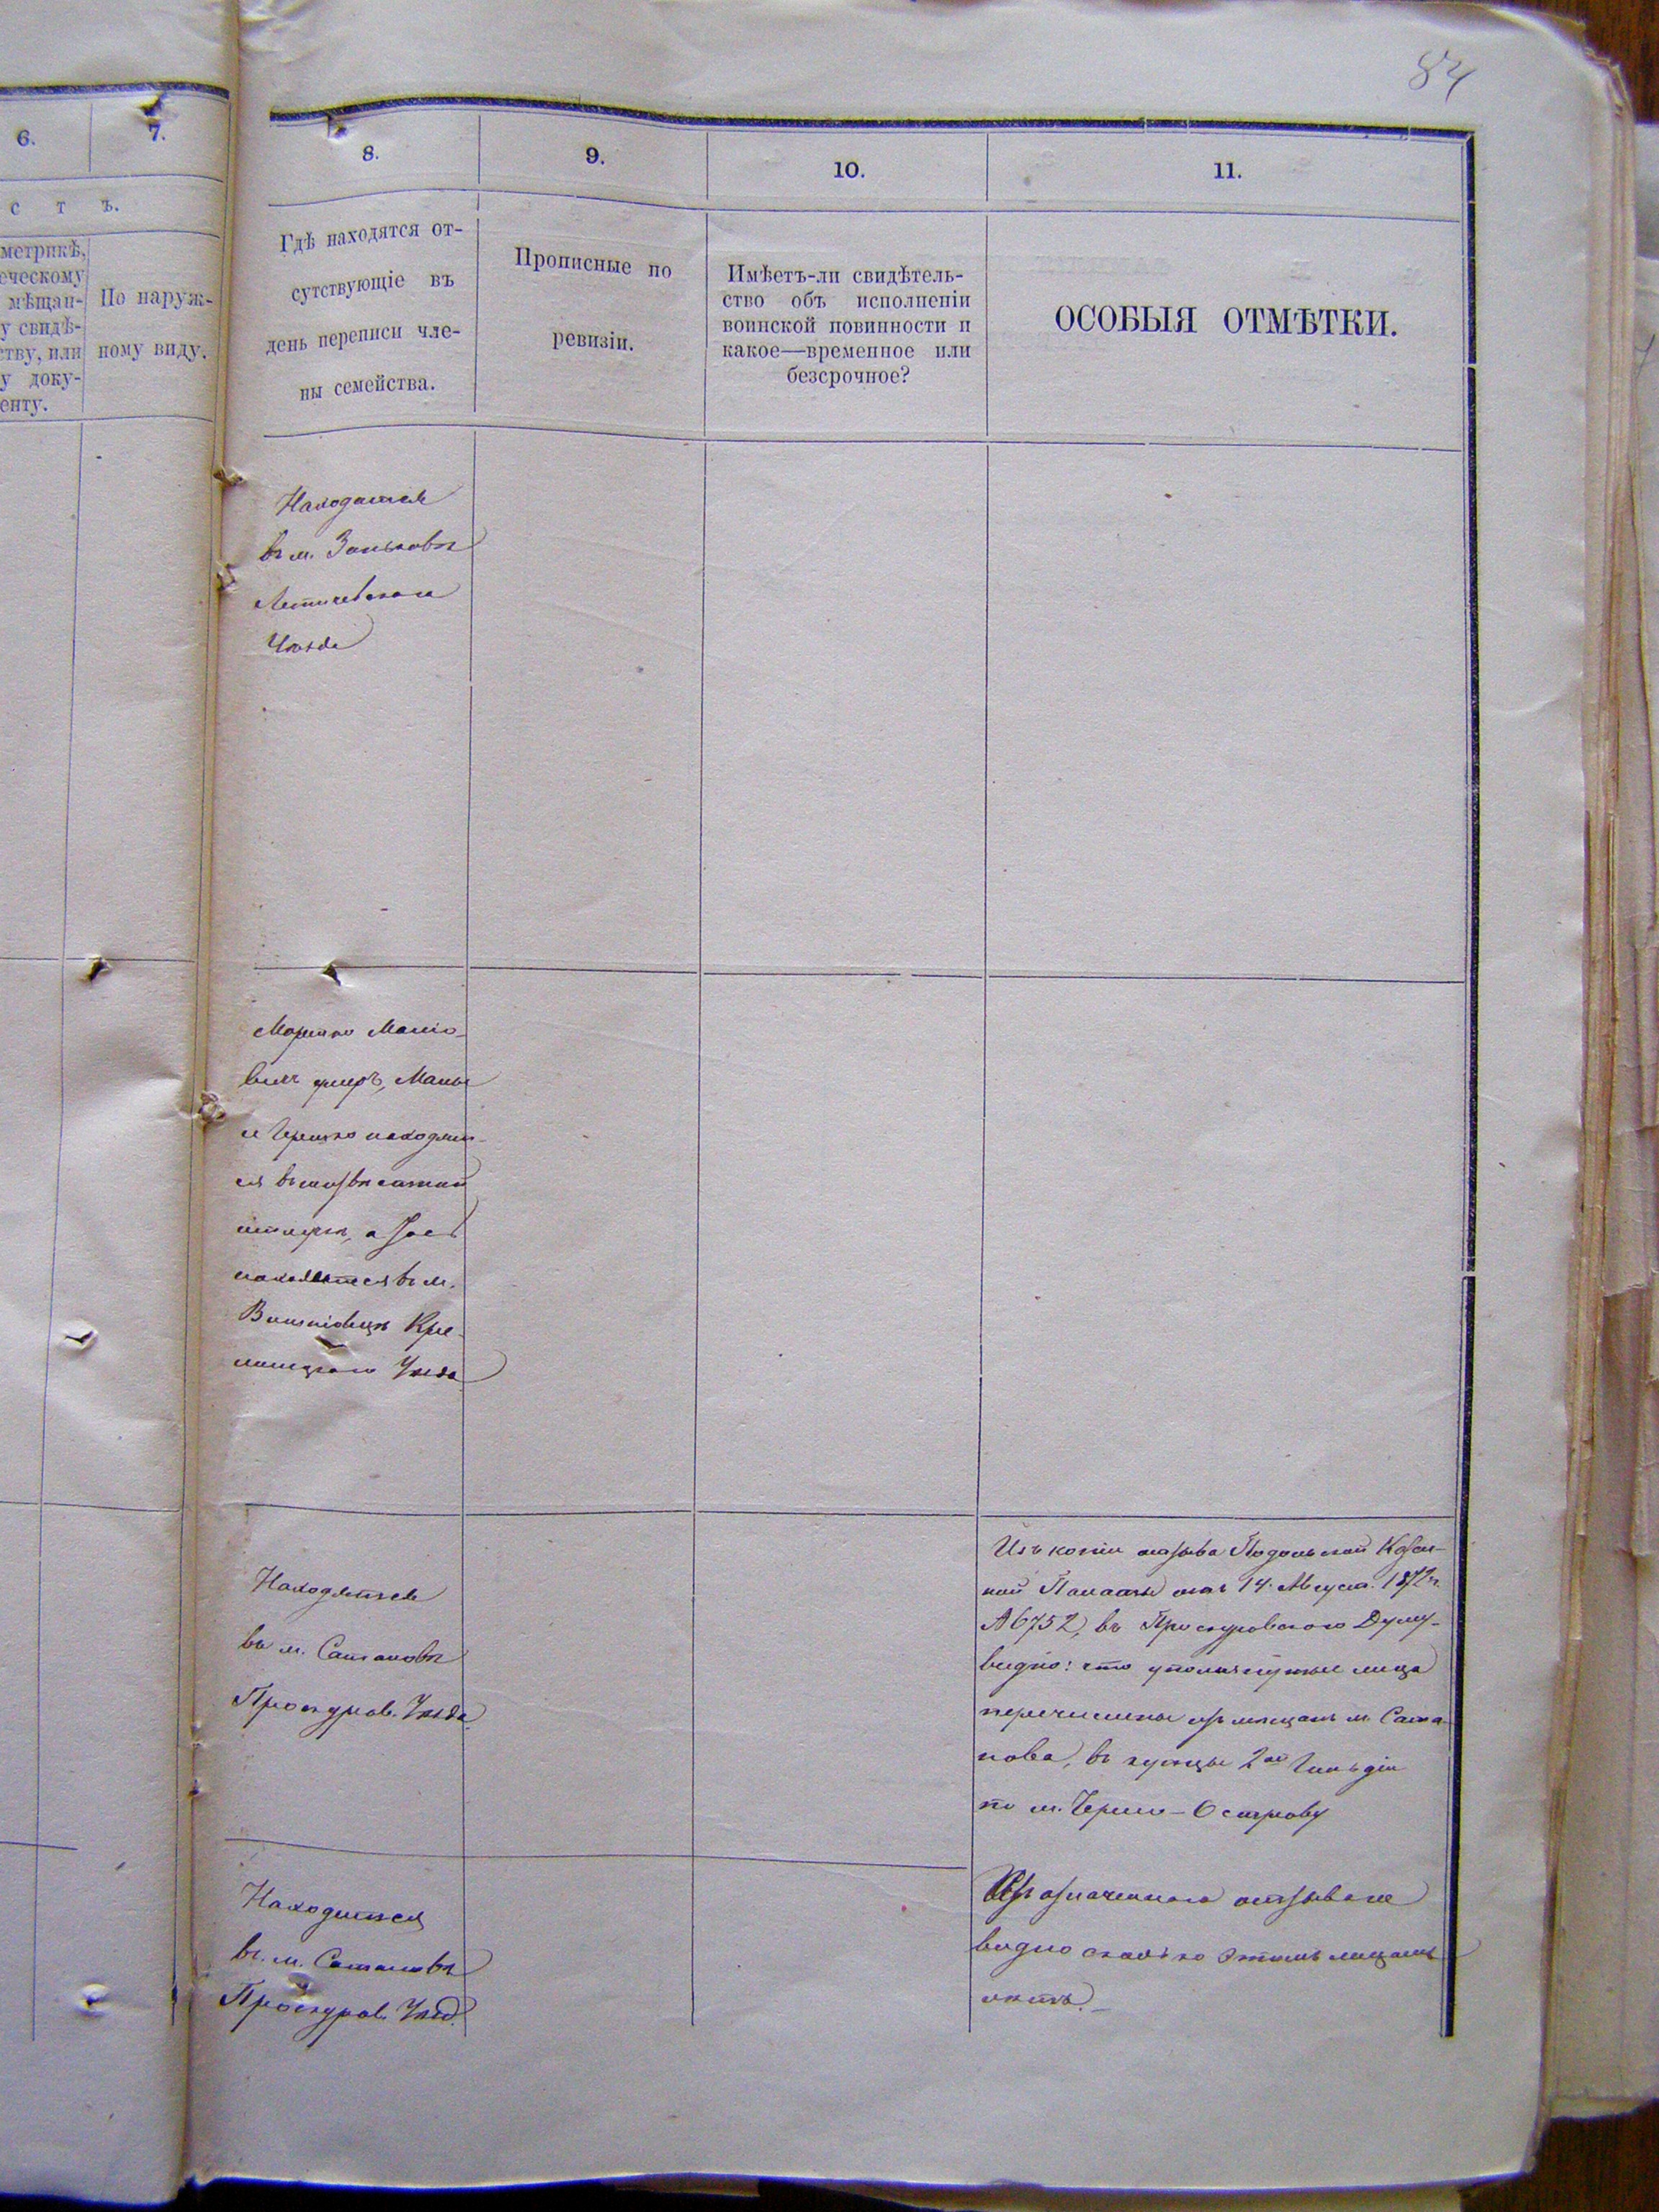 84
6.
7.
8.
9.
10.
11.
с т ъ.
метрикѣ,
еческому
мѣщан-
у свидѣ-
ству, или
у доку-
енту.
По наруж-
ному виду.
Гдѣ находятся от-
сутствующіе въ
день переписи чле-
ны семейства.
Прописные по
ревизіи.
Имѣетъ-ли свидѣтель-
ство объ исполненіи
воинской повинности и
какое—временное или
безсрочное?
ОСОБЫЯ ОТМѢТКИ.
Находятся
въ м. Зиньковѣ
Летичевскаго
Уѣзда
Маніо-
вичъ умеръ,
и Гершко находят-
ся въ
а
находятся въ м.
Вишнiовцѣ Кре-
минецкаго Уѣзда
Находятся
въ м. Сатановѣ
Проскуров. Уѣзда.
Изъ копіи отзыва Подольской Казен-
ной Палаты отъ 14 Августа 1872 г.
№ 6752, въ Проскуровскую Думу
видно: что упомянутые лица
перечислены изъ мѣщанъ м. Сата-
нова, въ купцы 2ой Гильдіи
по м. Черно-Острову
Находится
въ м. Сатановѣ
Проскуров. Уѣзд.
Изъ означеннаго отзыва не
видно сколько этимъ лицамъ
лѣтъ.